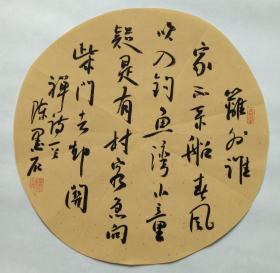 籬外誰
家不系船春風
吹入钓魚灣小童
疑是有村客急向
柴門去却關
禪詩一
陈墨石